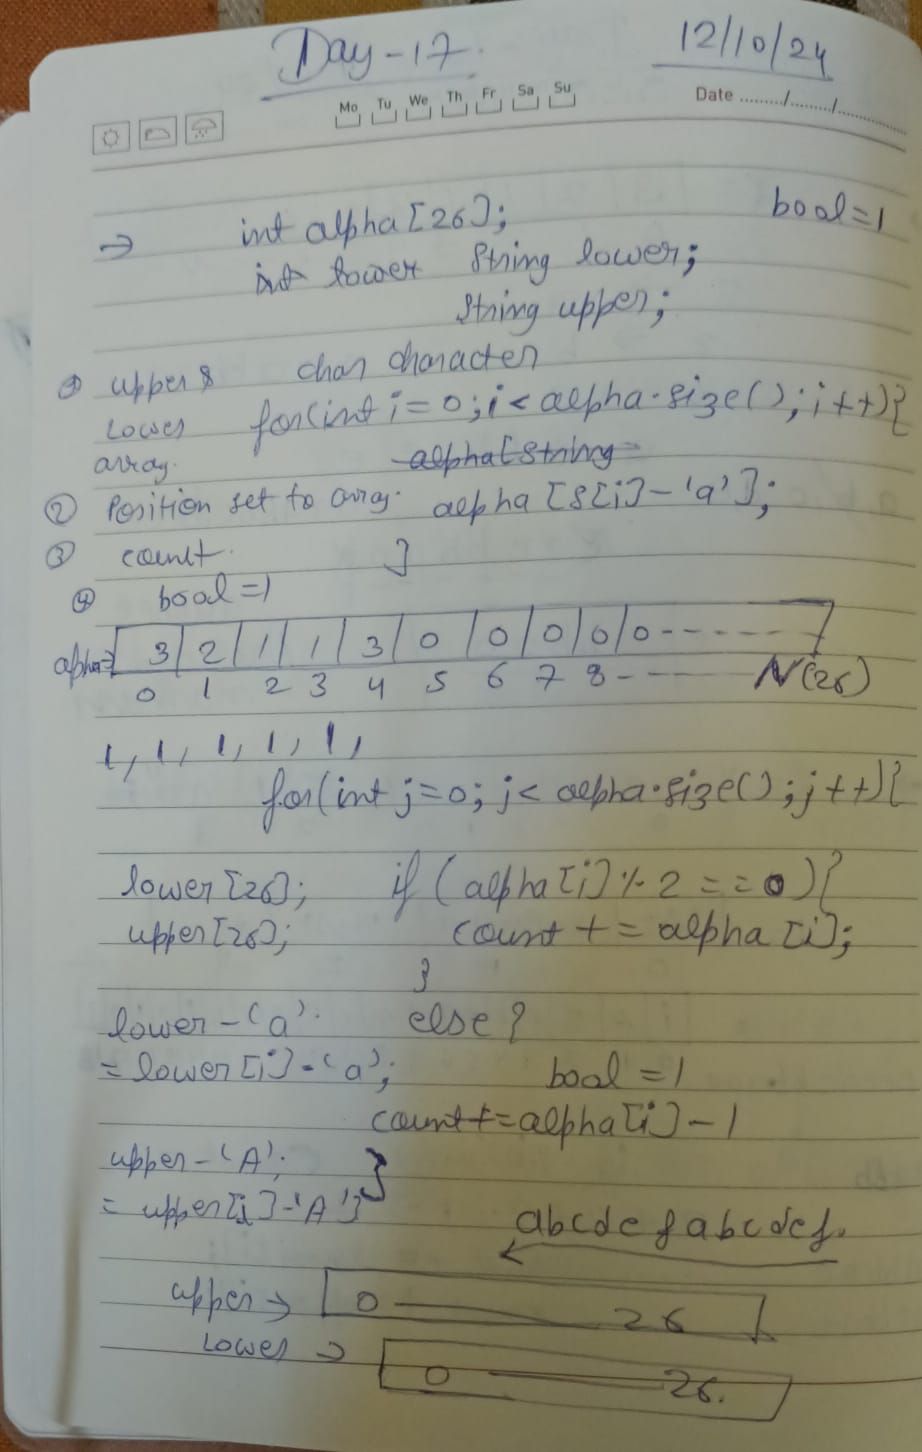 Day-17.
12/10/24
Mo Tu We Th Fr Sa Su
Date ........./........./.............
→ int alpha[26]; bool=1
int lower String lower;
String upper;
① upper & char character
Lower for(int i=0;i<alpha.size();i++){
array. alpha[string
② Position set to array. alpha[s[i]-'a'];
③ count. }
④ bool=1
alpha= 3 2 1 1 3 0 0 0 0 0------
0 1 2 3 4 5 6 7 8----- N(26)
1, 1, 1, 1, 1,
for(int j=0; j< alpha.size(); j++){
lower[26]; if (alpha[i]%2==0){
upper[26]; count += alpha[i];
}
lower-'a'. else{
=lower[i]-'a'; bool=1
count+=alpha[i]-1
upper-'A'; }
= upper[i]-'A']
abcdefabcdef.
←
upper → 0 — 26
Lower → 0 — 26.